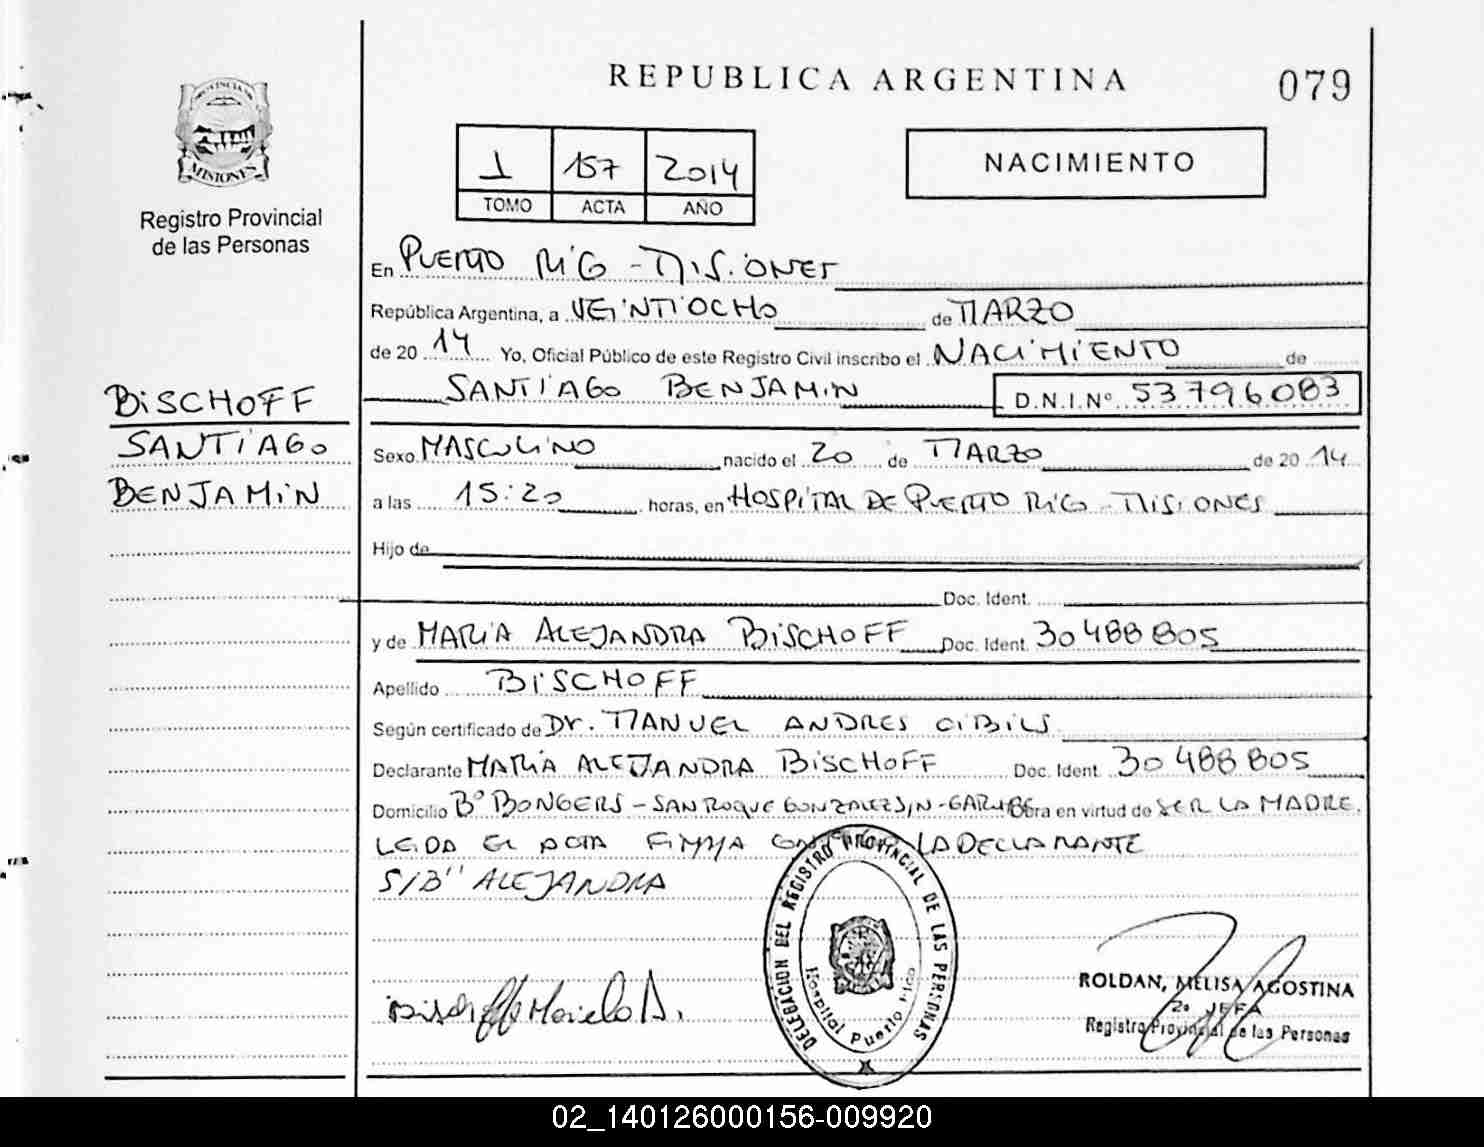 REPUBLICA ARGENTINA
079
PROVINCIA DE
MISIONES
Registro Provincial
de las Personas
1 157 2014
TOMO ACTA AÑO
NACIMIENTO
En PUERTO RICO - MISIONES
República Argentina, a VEINTIOCHO de MARZO
de 20 14 Yo, Oficial Público de este Registro Civil inscribo el NACIMIENTO de
SANTIAGO BENJAMIN D.N.I.Nº 53796083
BISCHOFF
SANTIAGO
BENJAMIN
Sexo MASCULINO nacido el 20 de MARZO de 20 14
a las 15:20 horas, en HOSPITAL DE PUERTO RICO - MISIONES
Hijo de
Doc. Ident.
y de MARIA ALEJANDRA BISCHOFF Doc. Ident. 30488805
Apellido BISCHOFF
Según certificado de Dr. MANUEL ANDRES CIBILS
Declarante MARIA ALEJANDRA BISCHOFF Doc. Ident. 30488805
Domicilio Bº BONGERS - SAN ROQUE GONZALEZ S/N - Obra en virtud de SER LA MADRE.
LEIDA EL ACTA FIRMA LA DECLARANTE
S/B" ALEJANDRA
DELEGACION DEL REGISTRO PROVINCIAL DE LAS PERSONAS
Hospital Puerto Rico
ROLDAN, MELISA AGOSTINA
2º JEFA
Registro Provincial de las Personas
02_140126000156-009920